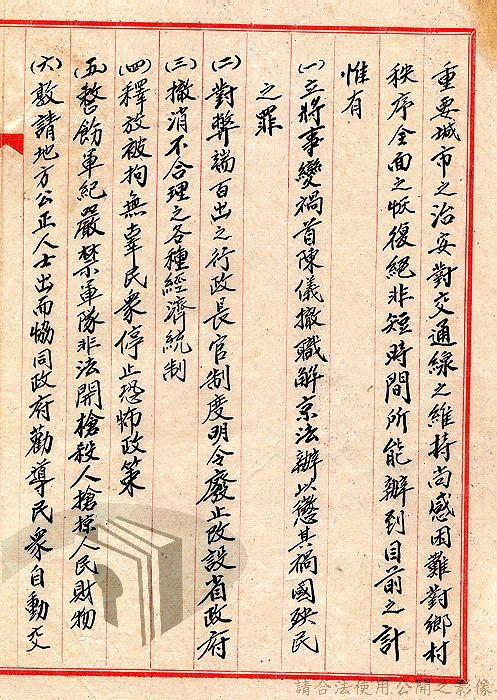 重要城市之治安對交通線之維持尚感困難對鄉村
秩序全面之恢復絕非短時間所能辦到目前之計
惟有
(一)立將事變禍首陳儀撤職解京法辦以懲其禍國殃民
之罪
(二)對弊端百出之行政長官制度明令廢止改設省政府
(三)撤消不合理之各種經濟統制
(四)釋放被拘無辜民衆停止恐怖政策
(五)整飭軍紀嚴禁軍隊非法開槍殺人搶掠人民財物
(六)敦請地方公正人士出而協同政府勸導民衆自動交
請合法使用公開之影像